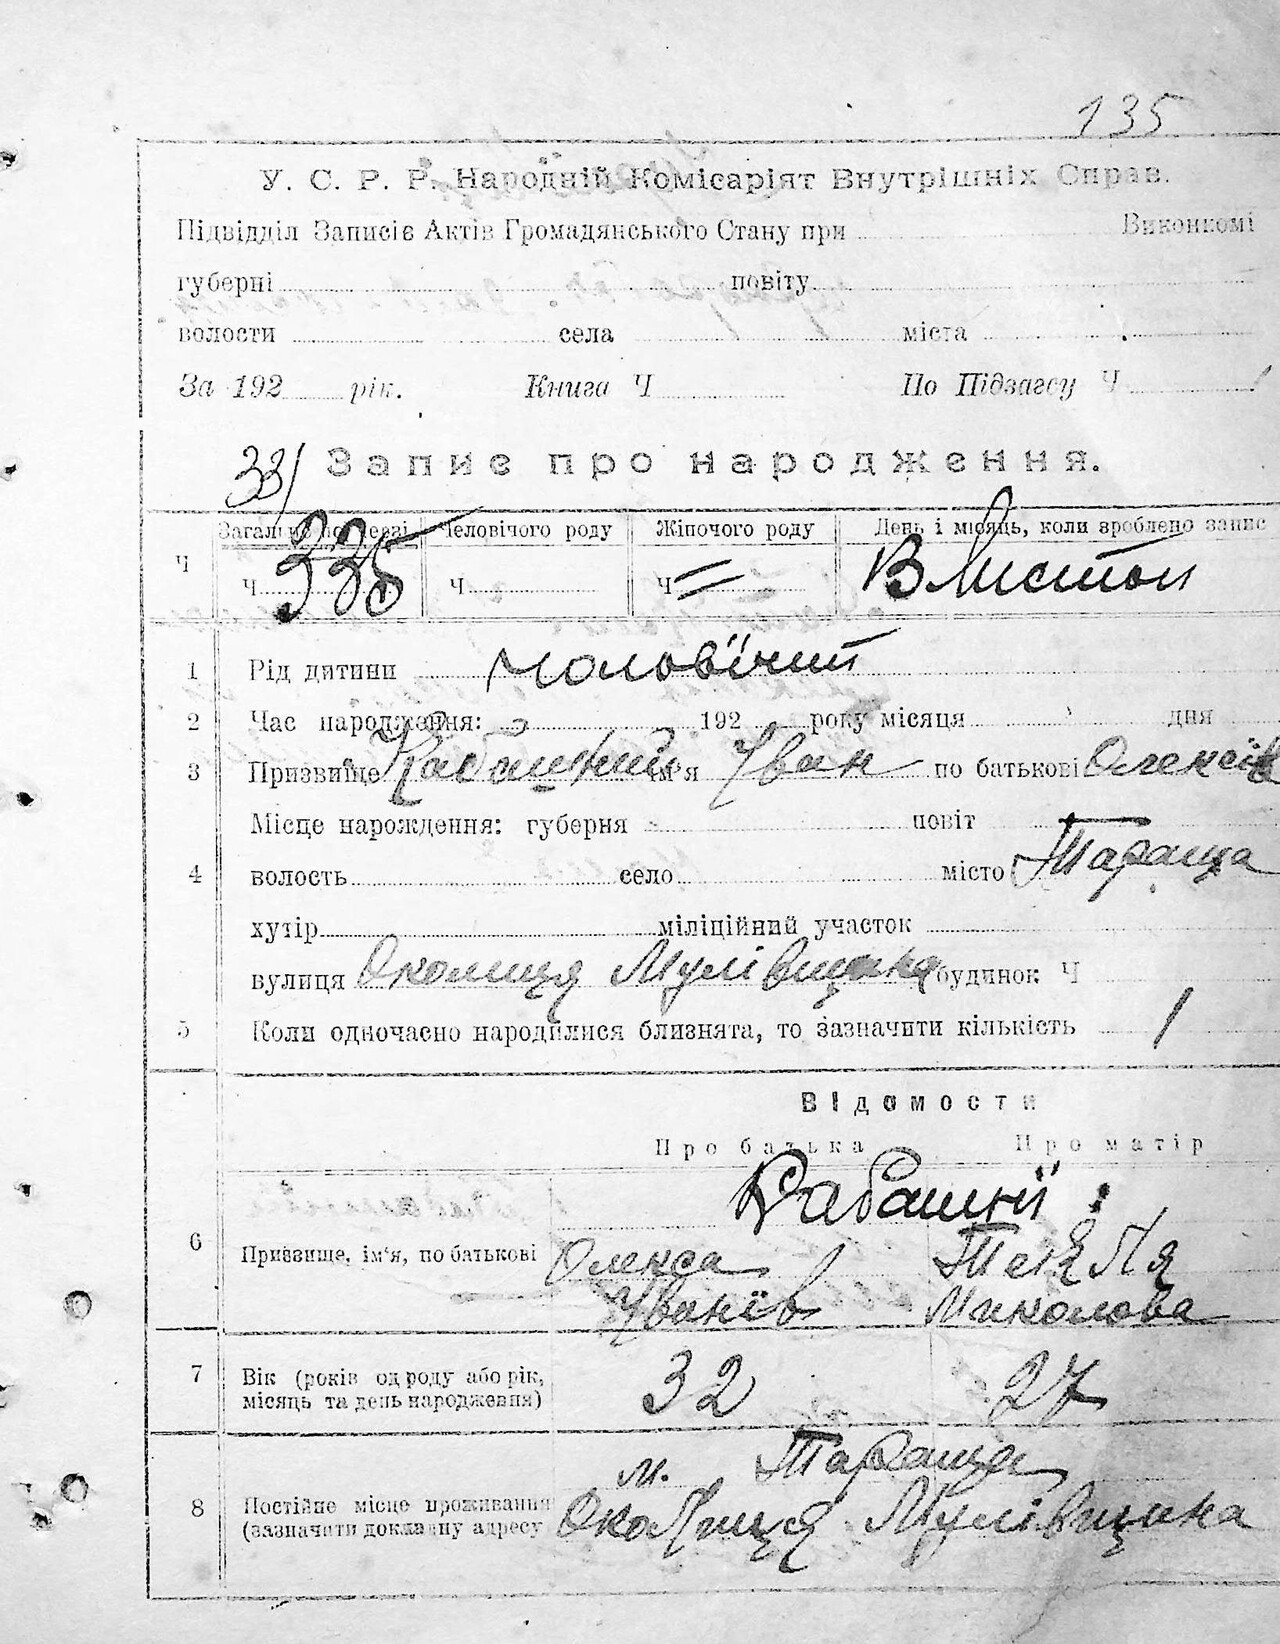 135
У. С. Р. Р. Народній Комісаріят Внутрішніх Справ.
Підвідділ Записів Актів Громадянського Стану при Виконкомі
губерні повіту
волости села міста
За 192 рік. Книга Ч По Підзагсу Ч
331 Запис про народження.
Загальної черзі Человічого роду Жіночого роду День і місяць, коли зроблено запис
Ч Ч 335 Ч Ч = 8 Листоп
1 Рід дитини чоловічий
2 Час народження: 192 року місяця дня
3 Призвище Кабашний ім'я Іван по батькові Олексів
Місце нарождення: губерня повіт
4 волость село місто Тараща
хутір міліційний участок
вулиця Околиця Мулівщина будинок Ч
5 Коли одночасно народилися близнята, то зазначити кількість 1
Відомости
Про батька Про матір
Кабашні :
6 Призвище, ім'я, по батькові Олекса Текля
Іванів Миколова
7 Вік (років од роду або рік, місяць та день народження) 32 27
м. Тараща
8 Постійне місце проживання (зазначити докладну адресу Околиця Мулівщина